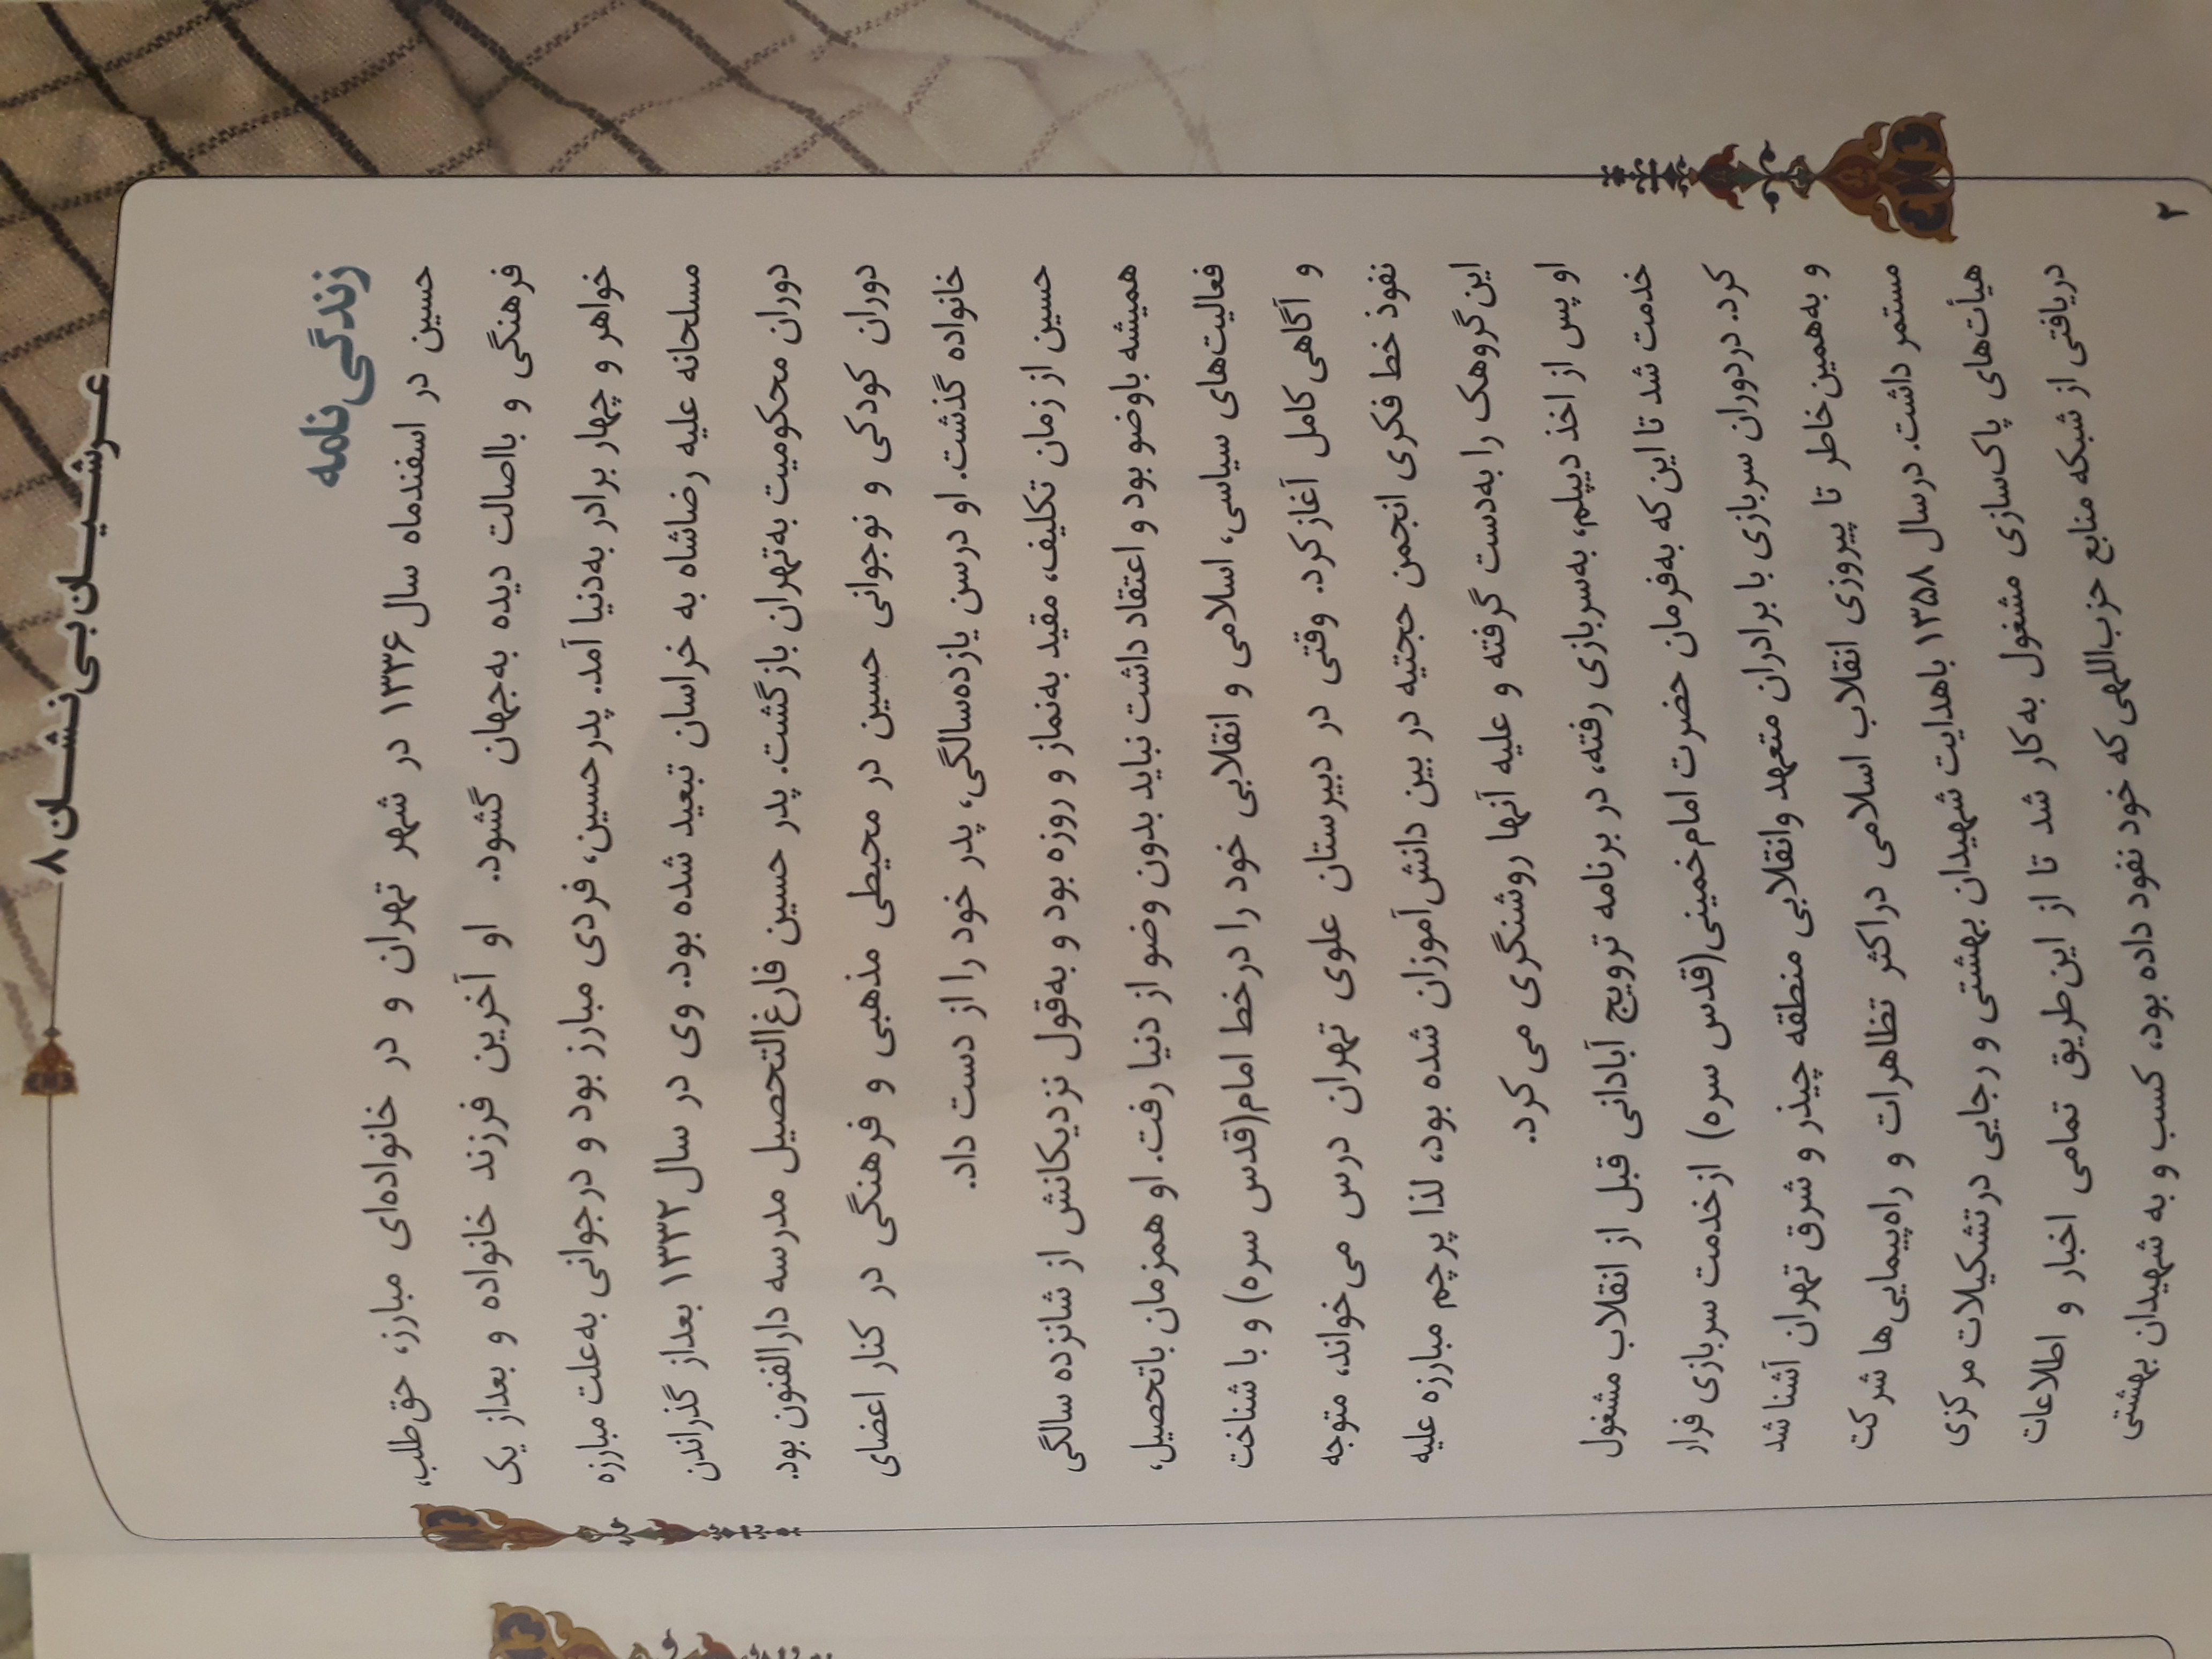 عرشیان بی‌نشان ۸
زندگی‌نامه
حسین در اسفندماه سال ۱۳۳۶ در شهر تهران و در خانواده‌ای مبارز، حق‌طلب،
فرهنگی و بااصالت دیده به‌جهان گشود. او آخرین فرزند خانواده و بعداز یک
خواهر و چهار برادر به‌دنیا آمد. پدر حسین، فردی مبارز بود و در جوانی به‌علت مبارزه
مسلحانه علیه رضاشاه به خراسان تبعید شده بود. وی در سال ۱۳۳۲ بعداز گذراندن
دوران محکومیت به‌تهران بازگشت. پدر حسین فارغ‌التحصیل مدرسه دارالفنون بود.
دوران کودکی و نوجوانی حسین در محیطی مذهبی و فرهنگی در کنار اعضای
خانواده گذشت. او درسن یازده‌سالگی، پدر خود را از دست داد.
حسین از زمان تکلیف، مقید به‌نماز و روزه بود و به‌قول نزدیکانش از شانزده سالگی
همیشه باوضو بود و اعتقاد داشت نباید بدون وضو از دنیا رفت. او همزمان باتحصیل،
فعالیت‌های سیاسی، اسلامی و انقلابی خود را درخط امام(قدس سره) و با شناخت
و آگاهی کامل آغاز کرد. وقتی در دبیرستان علوی تهران درس می‌خواند، متوجه
نفوذ خط فکری انجمن حجتیه در بین دانش‌آموزان شده بود، لذا پرچم مبارزه علیه
این گروهک را به‌دست گرفته و علیه آنها روشنگری می‌کرد.
او پس از اخذ دیپلم، به‌سربازی رفته، در برنامه ترویج آبادانی قبل از انقلاب مشغول
خدمت شد تا این که به‌فرمان حضرت امام خمینی(قدس سره) ازخدمت سربازی فرار
کرد. دردوران سربازی با برادران متعهد وانقلابی منطقه چیذر و شرق تهران آشنا شد
و به‌همین خاطر تا پیروزی انقلاب اسلامی دراکثر تظاهرات و راه‌پیمایی‌ها شرکت
مستمر داشت. درسال ۱۳۵۸ باهدایت شهیدان بهشتی و رجایی درتشکیلات مرکزی
هیأت‌های پاک‌سازی مشغول به‌کار شد تا از این‌طریق تمامی اخبار و اطلاعات
دریافتی از شبکه منابع حزب‌اللهی که خود نفود داده بود، کسب و به شهیدان بهشتی
۲